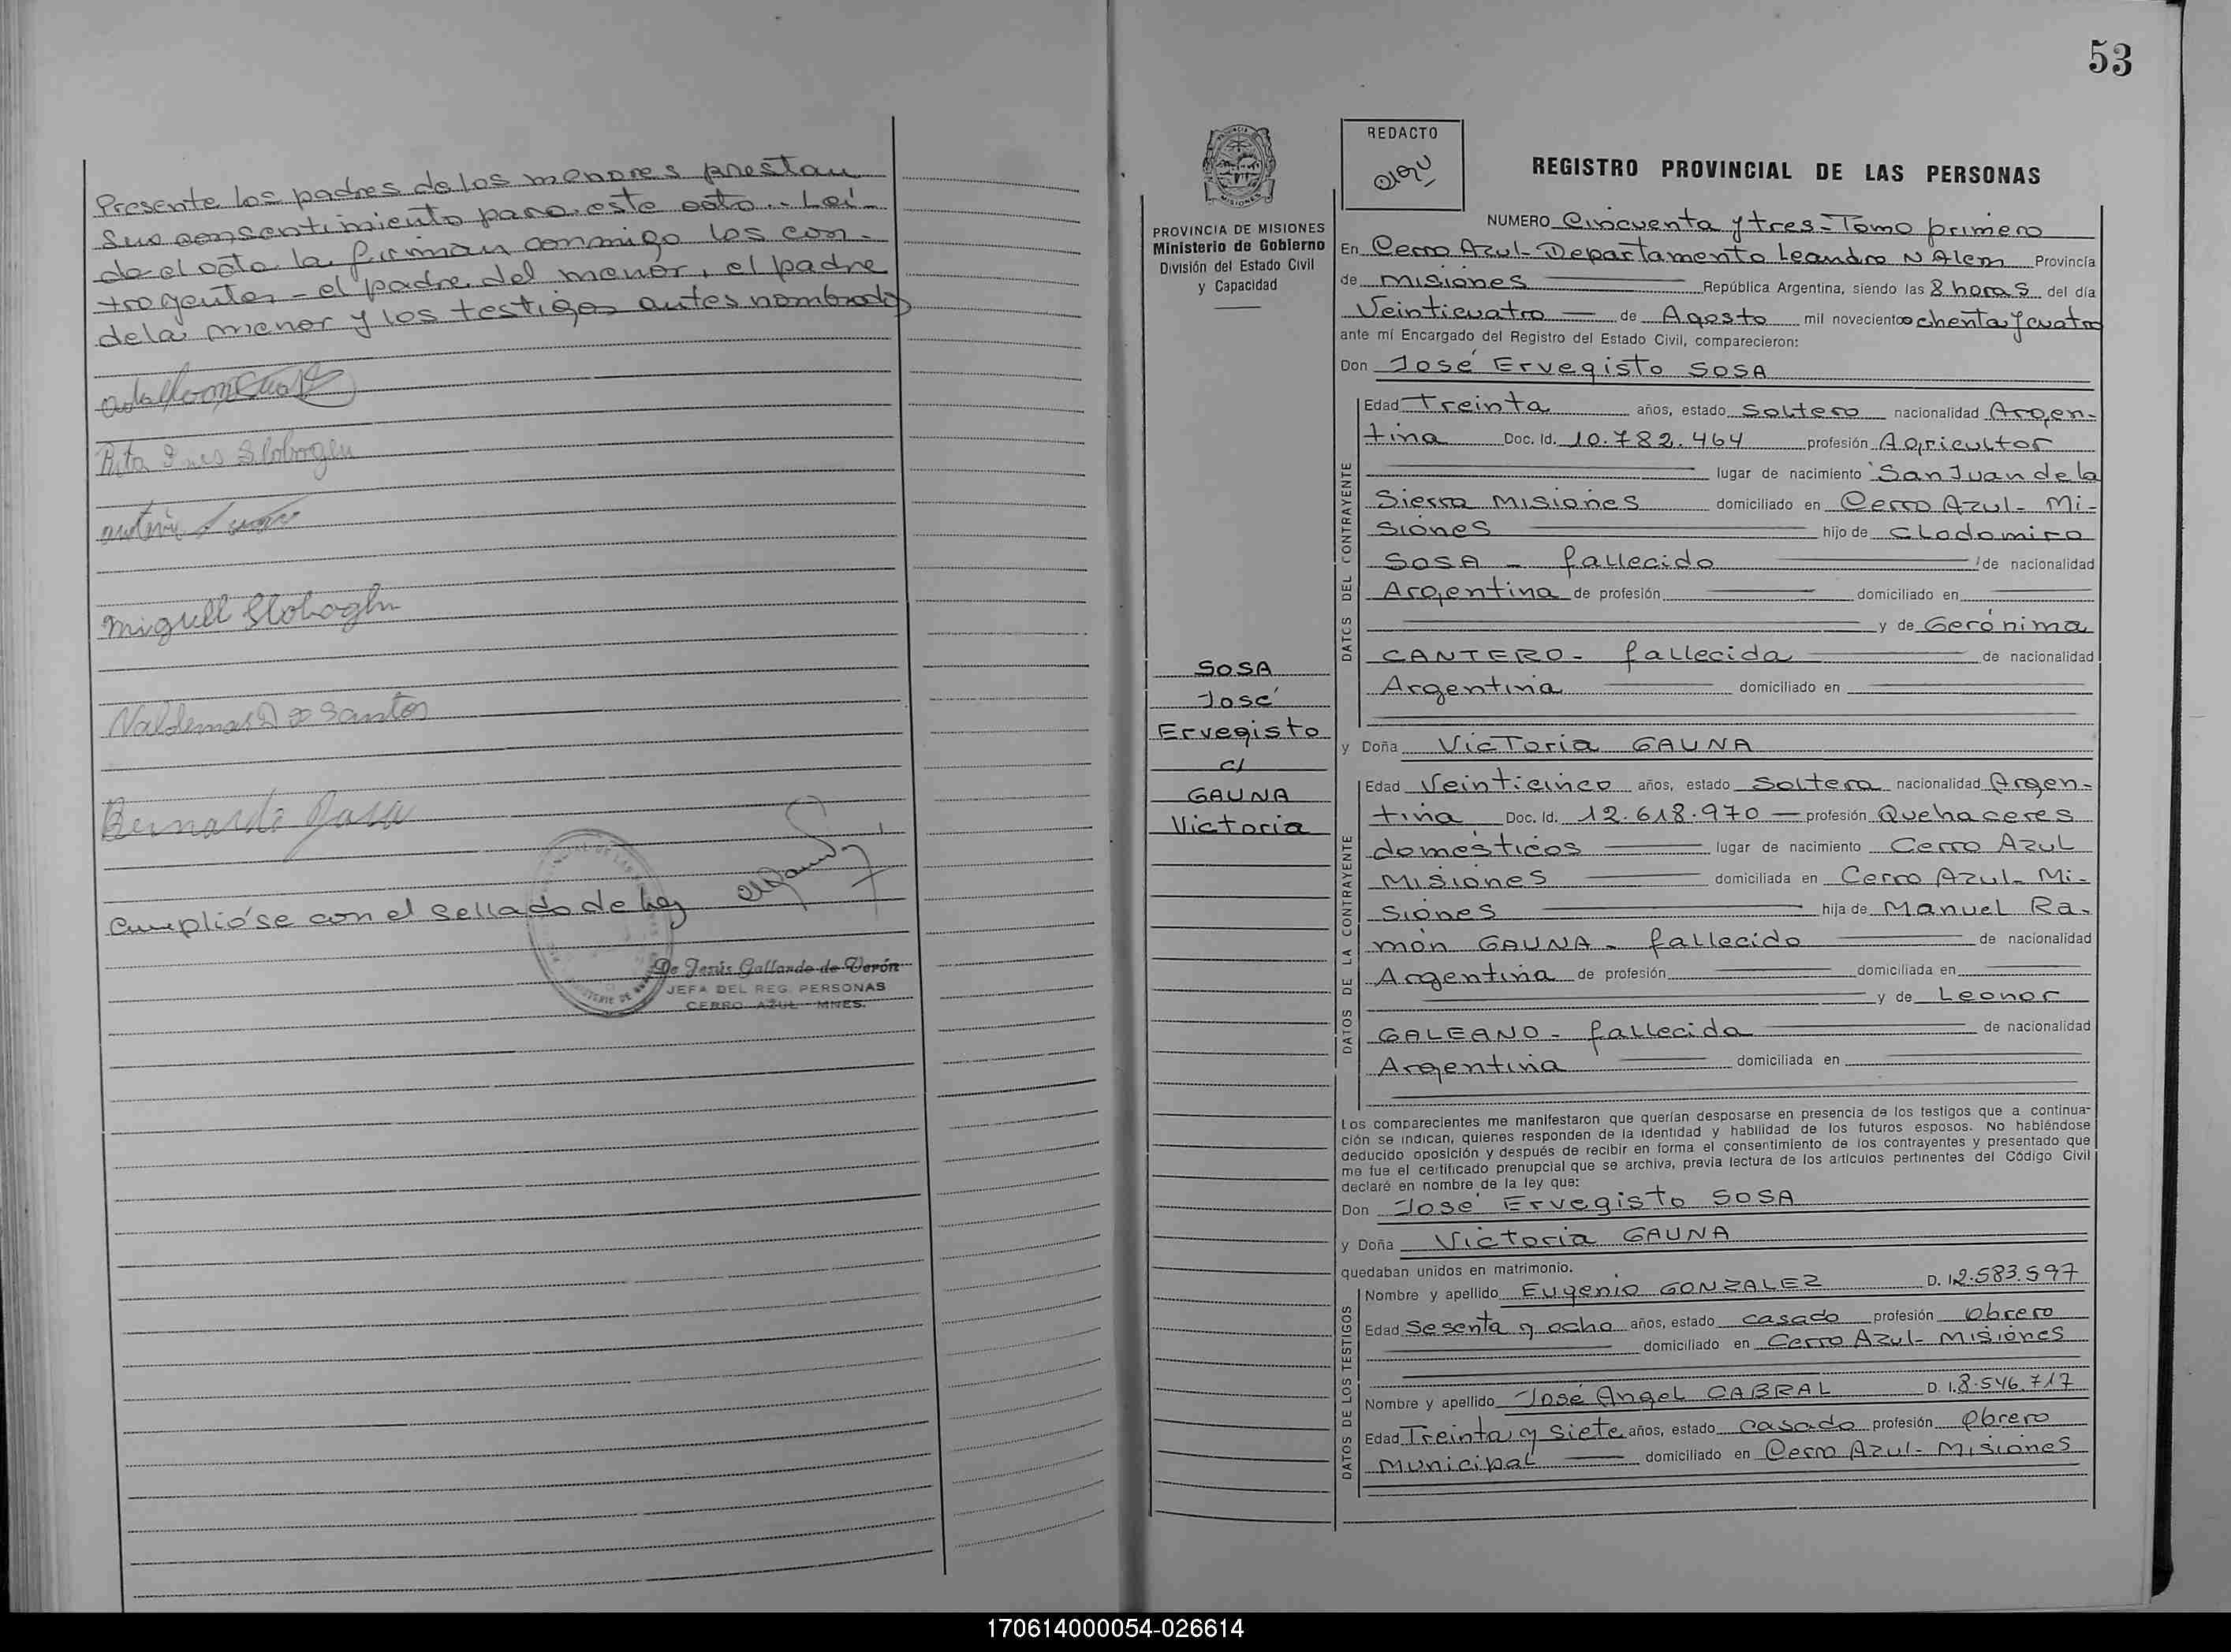 Presente los padres de los menores prestan
su consentimiento para este acto.- Leí-
da el acta la firman conmigo los con-
trayentes - el padre del menor, el padre
de la menor y los testigos antes nombrados
Rita Ines
Miguel
Valdemar D os Santos
Bernardo
Cumplióse con el sellado de ley
De Jesús Gallardo de Verón
JEFA DEL REG. PERSONAS
CERRO AZUL - MNES.
53
PROVINCIA DE MISIONES
Ministerio de Gobierno
División del Estado Civil
y Capacidad
SOSA
José
Ervegisto
c/
GAUNA
Victoria
REDACTO
REGISTRO PROVINCIAL DE LAS PERSONAS
NUMERO Cincuenta y tres - Tomo primero
En Cerro Azul - Departamento Leandro N Alem Provincia
de Misiones República Argentina, siendo las 8 horas del día
Veinticuatro de Agosto mil novecientos ochenta y cuatro
ante mí Encargado del Registro del Estado Civil, comparecieron:
Don José Ervegisto SOSA
DATOS DEL CONTRAYENTE
Edad Treinta años, estado Soltero nacionalidad Argen-
tina Doc. Id. 10.782.464 profesión Agricultor
lugar de nacimiento San Juan de la
Sierra Misiones domiciliado en Cerro Azul - Mi-
siones hijo de Clodomiro
SOSA - fallecido de nacionalidad
Argentina de profesión domiciliado en
y de Gerónima
CANTERO - fallecida de nacionalidad
Argentina domiciliado en
y Doña Victoria GAUNA
DATOS DE LA CONTRAYENTE
Edad Veinticinco años, estado Soltera nacionalidad Argen-
tina Doc. Id. 12.618.970 - profesión Quehaceres
domésticos lugar de nacimiento Cerro Azul
Misiones domiciliada en Cerro Azul - Mi-
siones hija de Manuel Ra-
món GAUNA - fallecido de nacionalidad
Argentina de profesión domiciliada en
y de Leonor
GALEANO - fallecida de nacionalidad
Argentina domiciliada en
Los comparecientes me manifestaron que querían desposarse en presencia de los testigos que a continua-
ción se indican, quienes responden de la identidad y habilidad de los futuros esposos. No habiéndose
deducido oposición y después de recibir en forma el consentimiento de los contrayentes y presentado que
me fue el certificado prenupcial que se archiva, previa lectura de los artículos pertinentes del Código Civil
declaré en nombre de la ley que:
Don José Ervegisto SOSA
y Doña Victoria GAUNA
quedaban unidos en matrimonio.
DATOS DE LOS TESTIGOS
Nombre y apellido Eugenio GONZALEZ D. I. 2.583.597
Edad Sesenta y ocho años, estado casado profesión Obrero
domiciliado en Cerro Azul - Misiones
Nombre y apellido José Angel CABRAL D. I. 8.546.717
Edad Treinta y siete años, estado casado profesión Obrero
Municipal domiciliado en Cerro Azul - Misiones
170614000054-026614